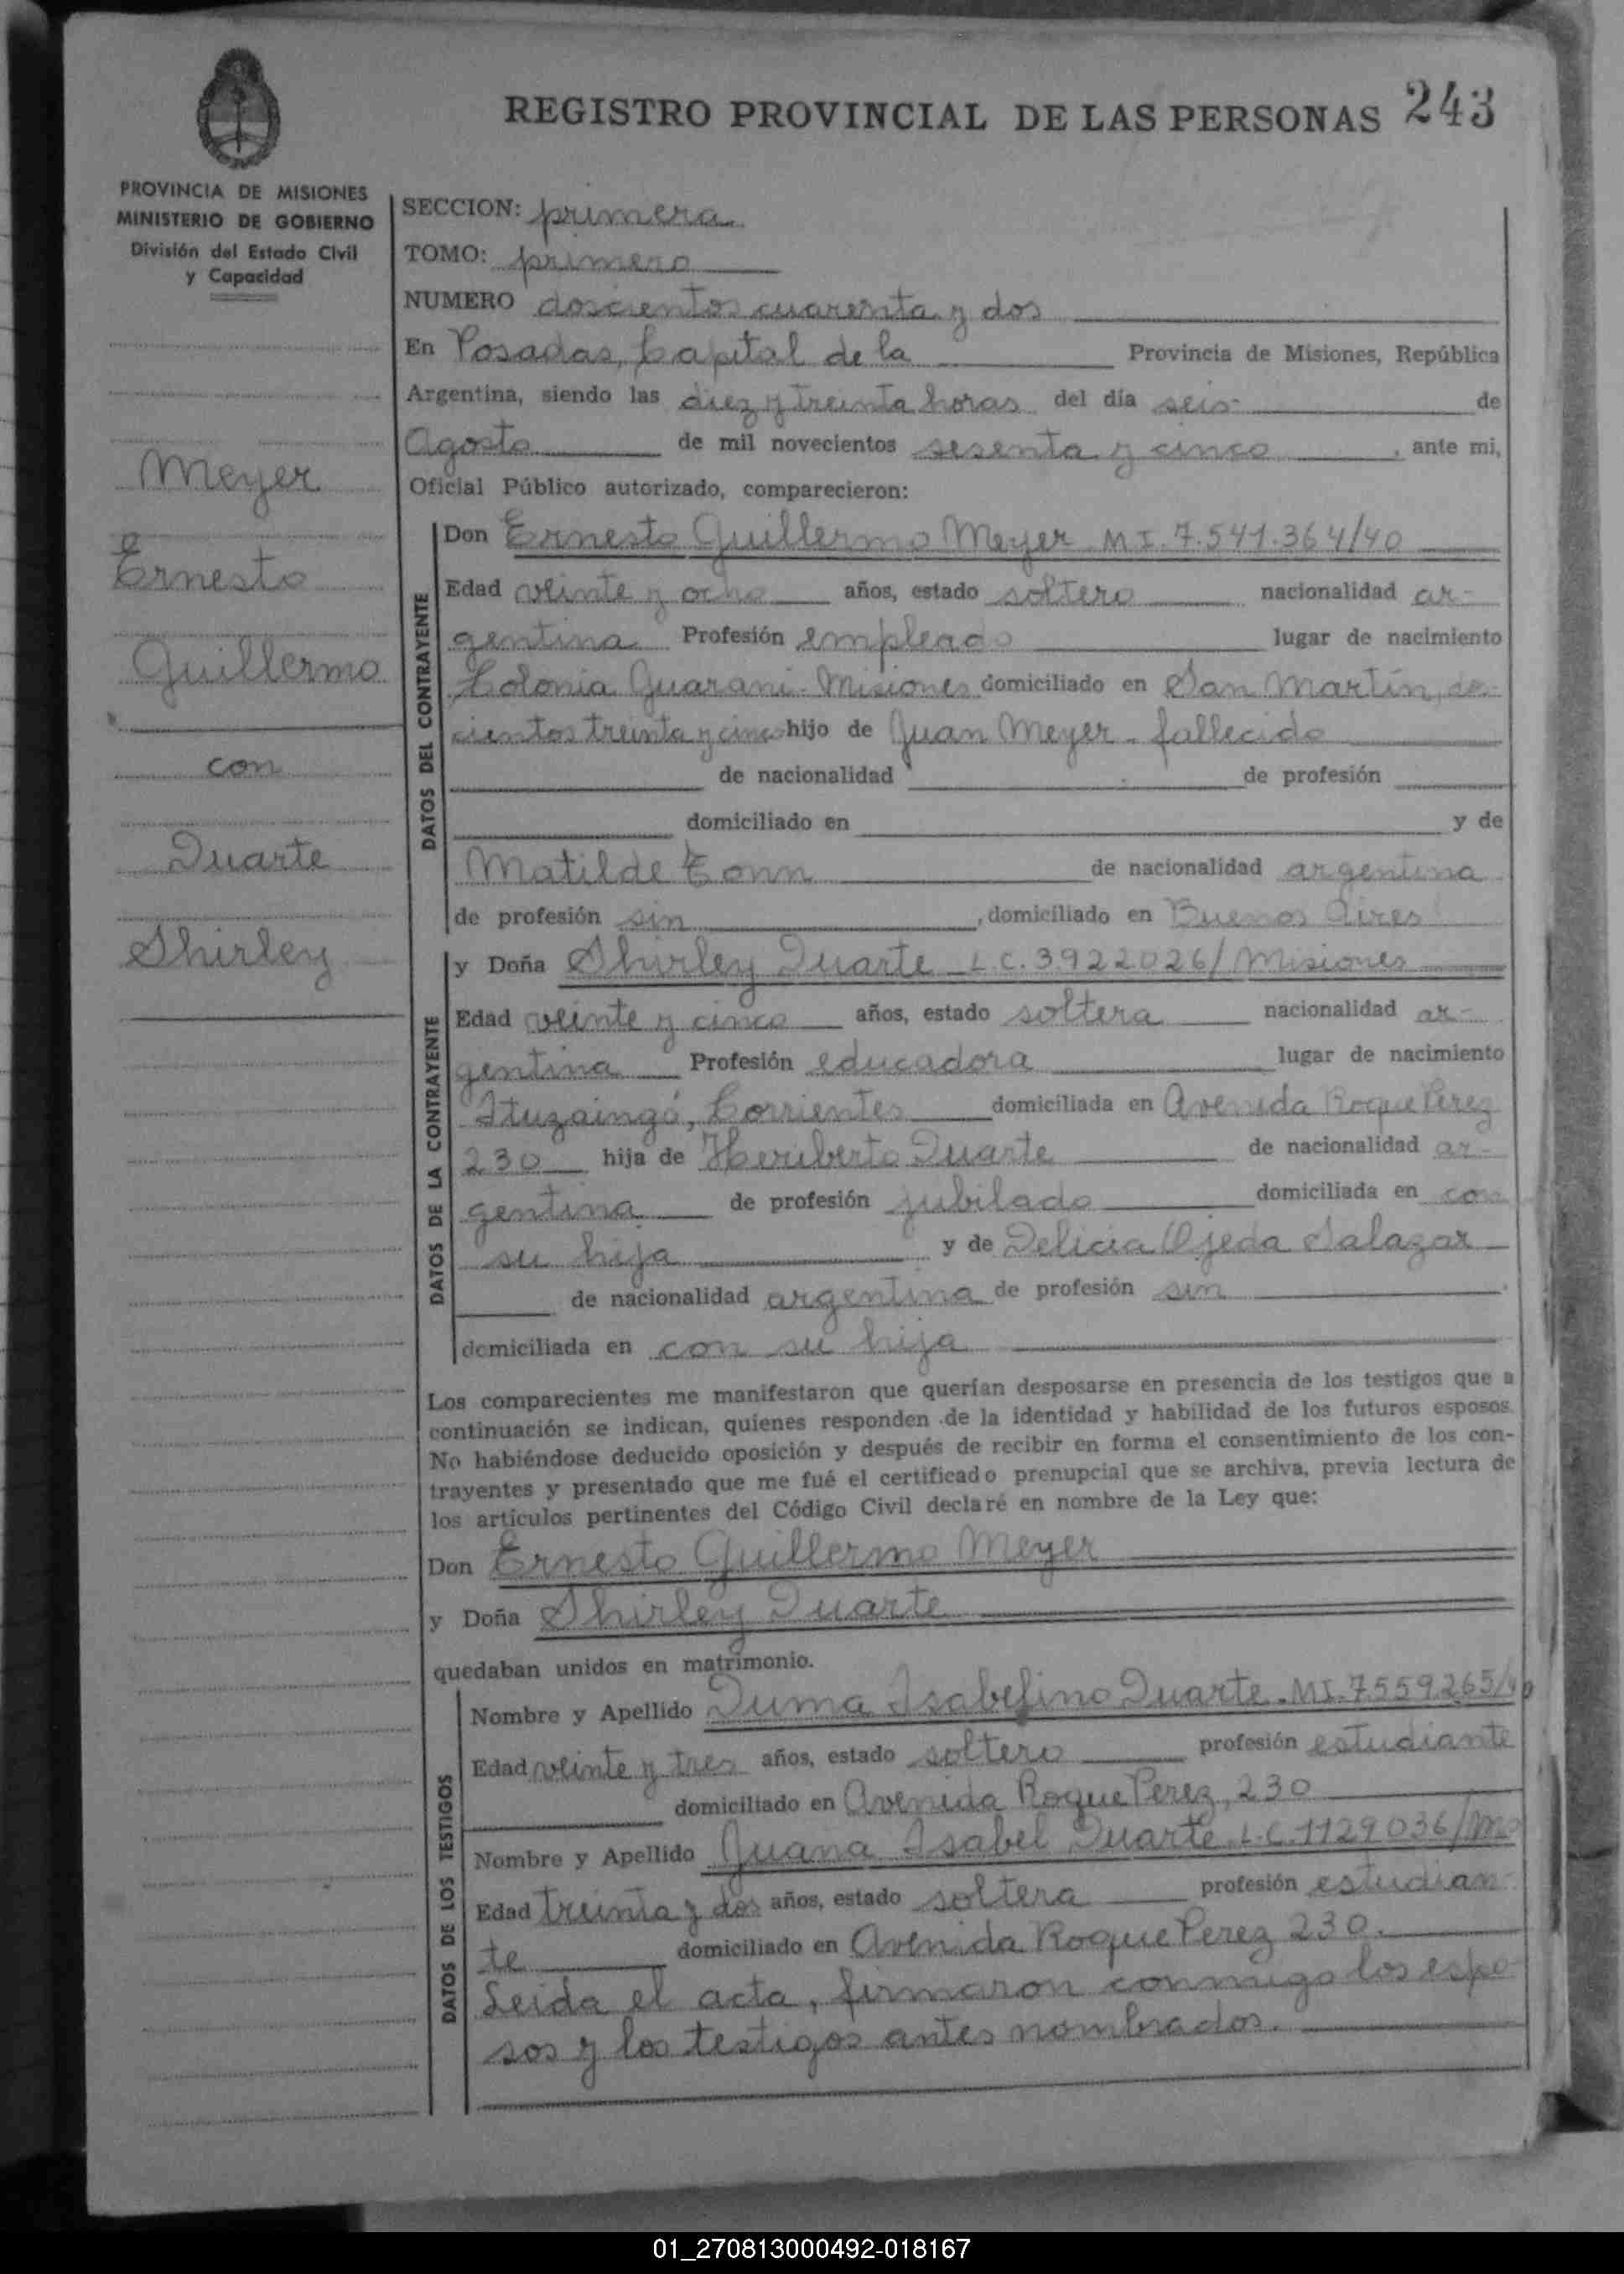 REGISTRO PROVINCIAL DE LAS PERSONAS 243
PROVINCIA DE MISIONES
MINISTERIO DE GOBIERNO
División del Estado Civil
y Capacidad
Meyer
Ernesto
Guillermo
con
Duarte
Shirley
SECCION: primera
TOMO: primero
NUMERO doscientos cuarenta y dos
En Posadas, Capital de la Provincia de Misiones, República
Argentina, siendo las diez y treinta horas del día seis de
Agosto de mil novecientos sesenta y cinco, ante mi,
Oficial Público autorizado, comparecieron:
DATOS DEL CONTRAYENTE
Don Ernesto Guillermo Meyer M I. 7.541.364/40
Edad veinte y ocho años, estado soltero nacionalidad ar-
gentina Profesión empleado lugar de nacimiento
Colonia Guarani - Misiones domiciliado en San Martín, do-
cientos treinta y cinco hijo de Juan Meyer - fallecido
de nacionalidad de profesión
domiciliado en y de
Matilde Tonn de nacionalidad argentina
de profesión sin, domiciliado en Buenos Aires
DATOS DE LA CONTRAYENTE
y Doña Shirley Duarte L.C. 3.922.026/ Misiones
Edad veinte y cinco años, estado soltera nacionalidad ar-
gentina Profesión educadora lugar de nacimiento
Ituzaingó, Corrientes domiciliada en Avenida Roque Perez
230 hija de Heriberto Duarte de nacionalidad ar-
gentina de profesión jubilado domiciliada en con
su hija y de Delicia Ojeda Salazar
de nacionalidad argentina de profesión sin
domiciliada en con su hija
Los comparecientes me manifestaron que querían desposarse en presencia de los testigos que a
continuación se indican, quienes responden de la identidad y habilidad de los futuros esposos.
No habiéndose deducido oposición y después de recibir en forma el consentimiento de los con-
trayentes y presentado que me fué el certificado prenupcial que se archiva, previa lectura de
los artículos pertinentes del Código Civil declaré en nombre de la Ley que:
Don Ernesto Guillermo Meyer
y Doña Shirley Duarte
quedaban unidos en matrimonio.
DATOS DE LOS TESTIGOS
Nombre y Apellido Duma Duarte. MI. 7559265/40
Edad veinte y tres años, estado soltero profesión estudiante
domiciliado en Avenida Roque Perez, 230
Nombre y Apellido Juana Isabel Duarte. L.C. 1129036/
Edad treinta y dos años, estado soltera profesión estudian-
te domiciliado en Avenida Roque Perez 230.
Leida el acta, firmaron conmigo los espo-
sos y los testigos antes nombrados.
01_270813000492-018167